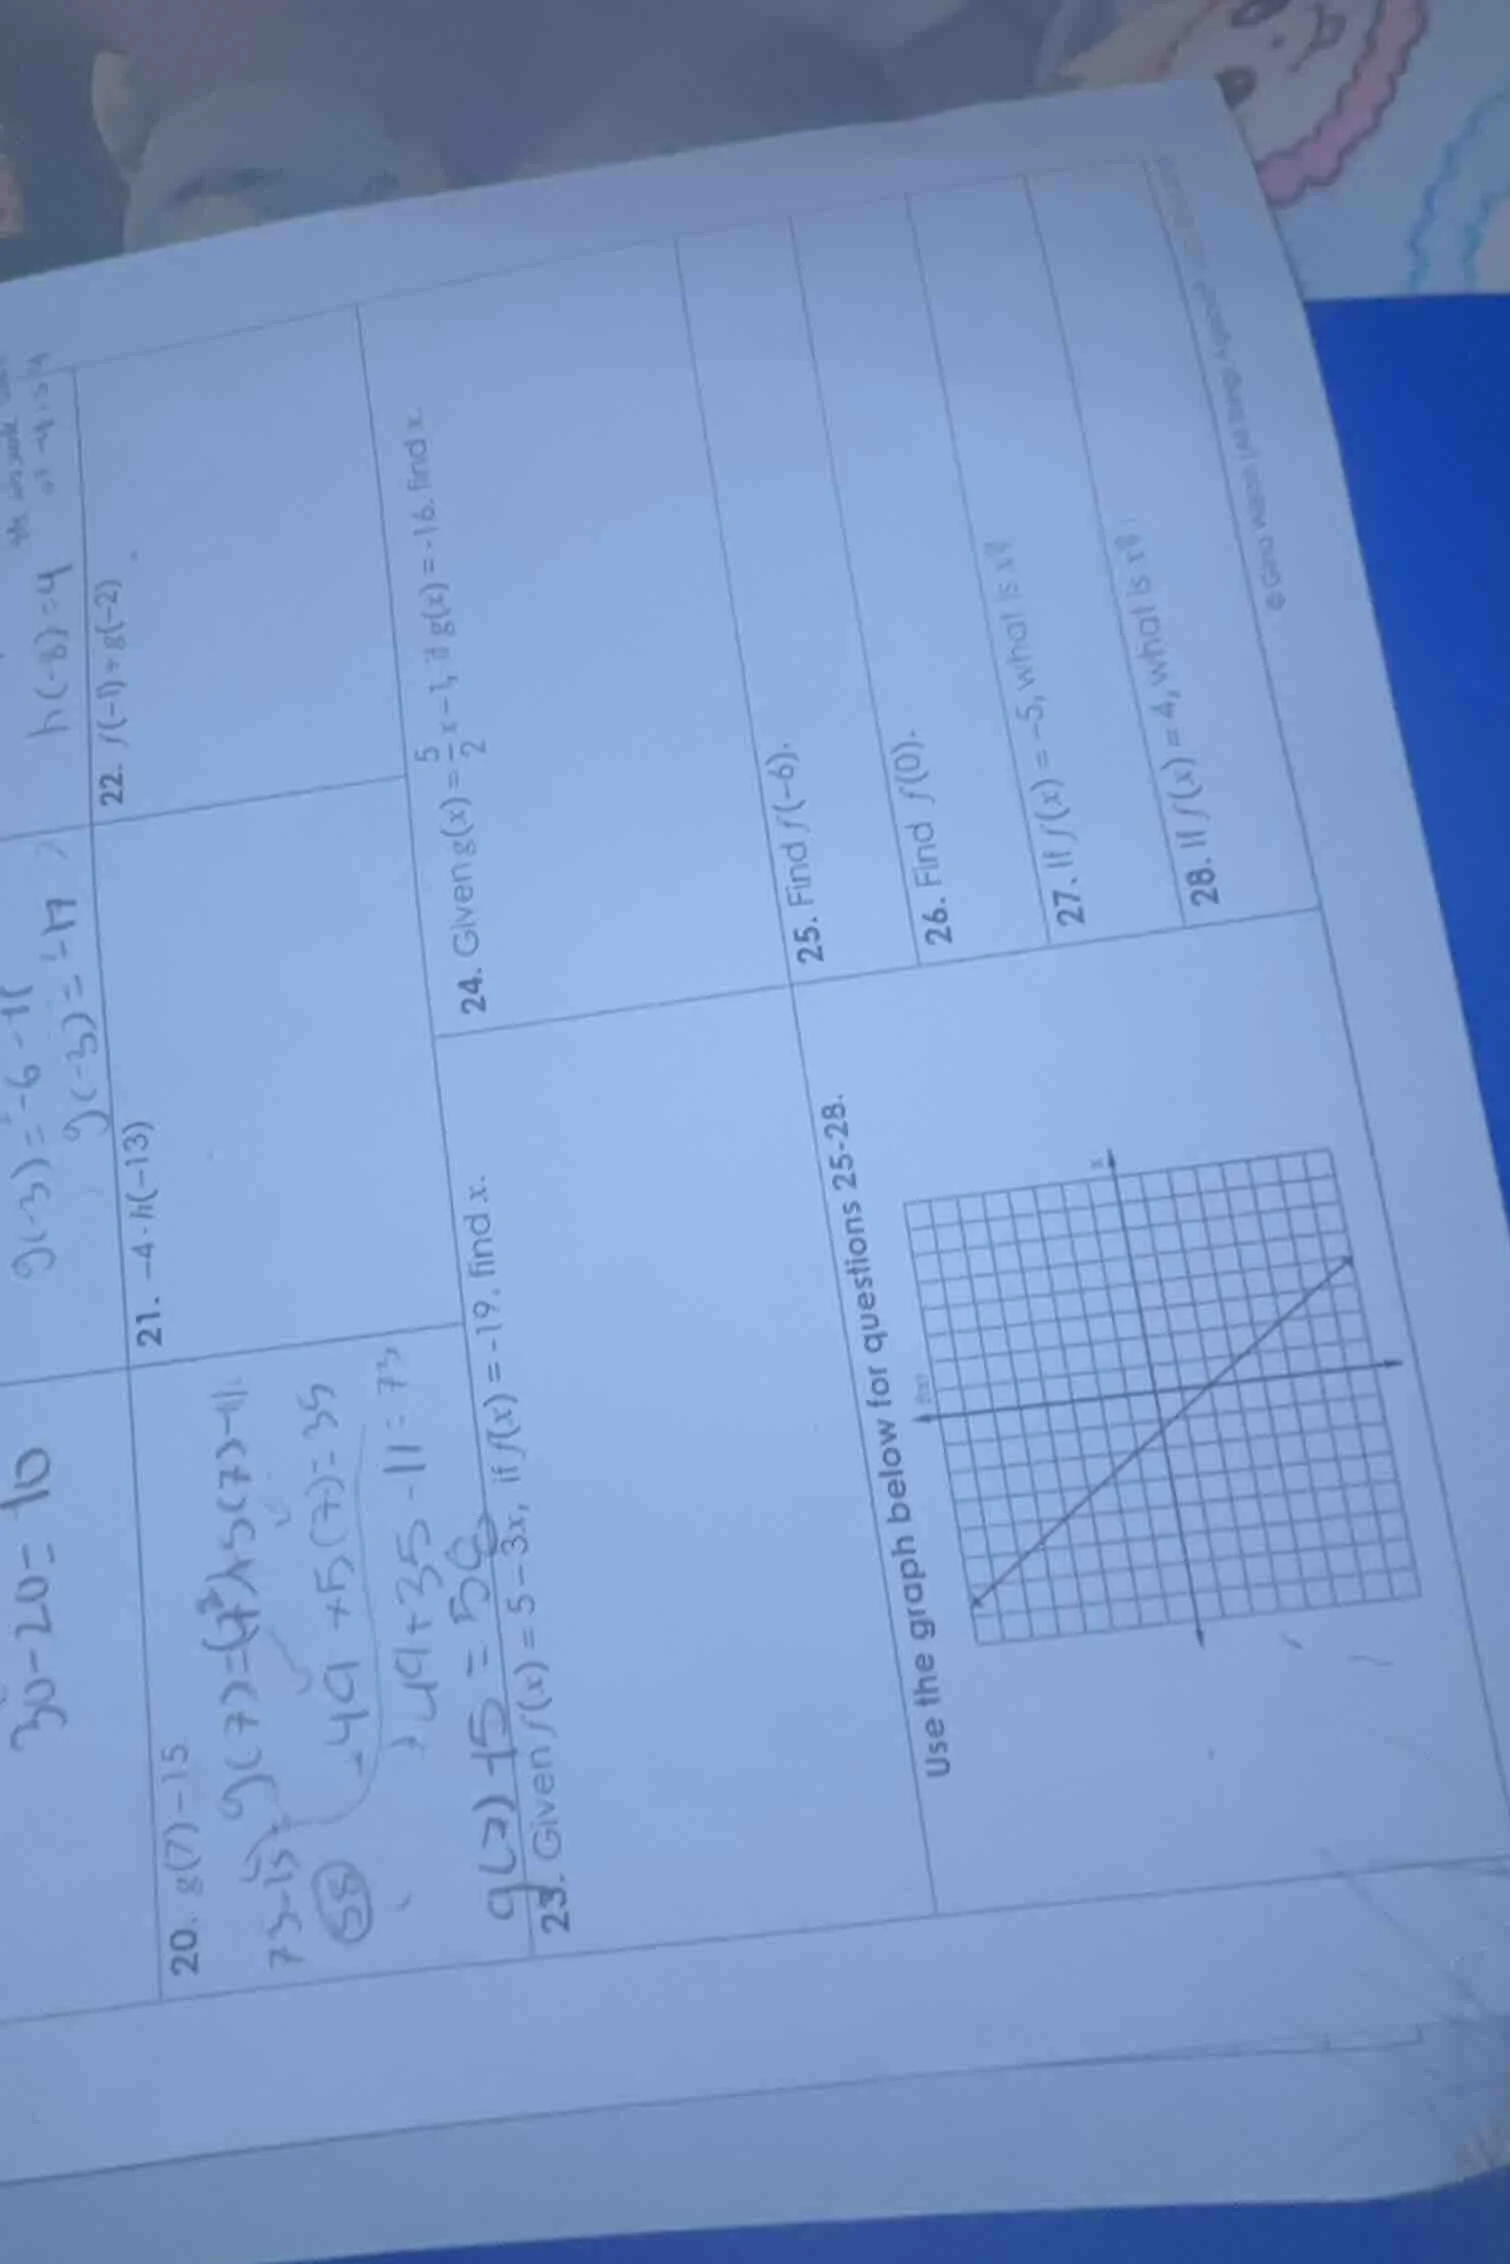 30-20=10
g(-3)=-6-11
g(-3)=-17
h(-8)=4
20. g(7)-15
73-15
58
49+5(7)=35
49+35-11=73
g(7)-15=58
21. -4·h(-13)
22. f(-1)+g(-2)
23. Given f(x)=5-3x, if f(x)=-19, find x.
24. Given g(x)=5/2x-1, if g(x)=-16, find x.
Use the graph below for questions 25-28.
x
25. Find f(-6).
26. Find f(0).
27. If f(x)=-5, what is x?
28. If f(x)=4, what is x?
© Gina Wilson (All Things Algebra